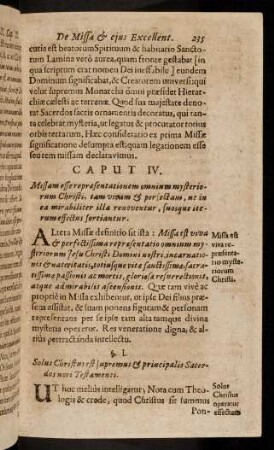 De Missa & ejus Excellent. 235
cutis est beatorum Spirituum & habitatio Sancto-
rum Lamina verò aurea, quam fronte gestabat [in
qua scriptum erat nomen Dei ineffabile] eundem
Dominum significabat, & Creatorem universi qui
velut supremus Monarcha omni præsidet Hierar-
chiæ cælesti ac terrenæ. Quod sua majestate deno-
tat Sacerdos sacris ornamentis decoratus, qui tan-
ta celebrat mysteria, ut legatus & procurator totius
orbis terrarum. Hæc consideratio ex prima Missæ
significatione desumpta est, quam legationem esse
104
CAPUT IV.
Missam esse repræsentationem omnium mysterio-
rum Christi, tam vivam & perfectam, ut in
ea mirabiliter illa renoventur, suosque ite-
rum effectus sortiantur.
ALtera Missæ definitio sit ista: Missa est viva
& perfectissima repræsentatio omnium my-
steriorum Jesu Christi Domini nostri, incarnati-
onis & nativitatis, totiusque vitæ sanctissimæ, sacra-
tissimæ passionis ac mortis, gloriosæ resurrectionis,
atque admirabilis ascensionis. Quæ tam vivè ac
propriè in Missa exhibentur, ut ipse Dei filius præs-
assistat, & suam ponens figuram & personam
repræsentans per se ipse tam alta tamque divina
mysteria operetur. Res veneratione digna, & al-
tiùs pertractanda intellectu.
Missa est
viva re-
præsenta-
tio myste-
riorum
Christi.
§ I.
Solus Christus est supremus & principalis Sacer-
dos novi Testamenti.
UT hoc meliùs intelligatur; Nota cum Theo-
logia & crede, quod Christus sit summus
Pon-
Solus
Christus
operatur
effectum